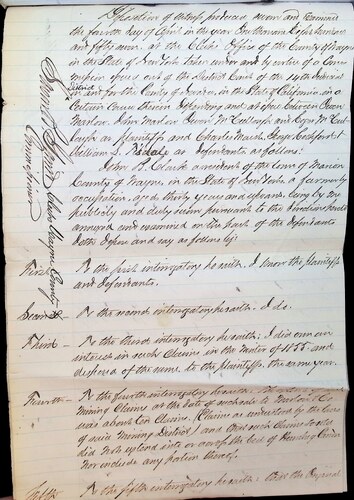 Deposition of witness produced sworn and Examined
the fourth day of April in the year One thousand Eight hundred
and fifty seven, at the Clerks Office of the County of Wayne
in the State of New York taken under and by virtue of a Com
mission issued out of the District Court of the 14th Judicial
District
in and for the County of in the State of California in a
Certain Cause therein depending and at issue between
Marlow, John Marlow, McCullough and
as plaintiffs and Charles Marsh, George
William as defendants as follows
John B. Clark a resident of the town of Marion
County of Wayne, in the State of New York, &
occupation, aged thirty years and upwards being by me
publicly and duly sworn pursuant to the directions hereto
annexed and examined on the part of the defendants
doth depose and say as follows viz:
Samuel
Clerk Wayne County
Commissioner
First - To the first interrogatory he saith. I know the plaintiffs
and defendants.
Second - To the second interrogatory he saith: I do.
Third - To the third interrogatory he saith: I did own an
interest in such Claims in the winter of 1855 and
disposed of the same to the plaintiffs, the same year.
Fourth - To the fourth interrogatory he saith:
Mining Claims at the date of such sale to Marlow & Co
was about ten Claims. Claims as understood by the laws
of said Mining District and that such Claims
did not extend into or across the bed of
nor include any portion thereof.
Fifth - To the fifth interrogatory he saith: that the